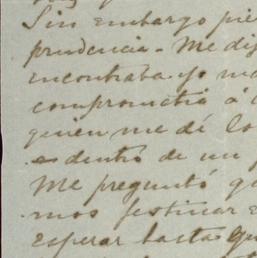 Sin embargo pie
prudencia. Me dij
encontraba yo ma
comprometia á
quien me dé lo
dentro de un p
Me preguntó qu
mos festinar e
esperar hasta qu